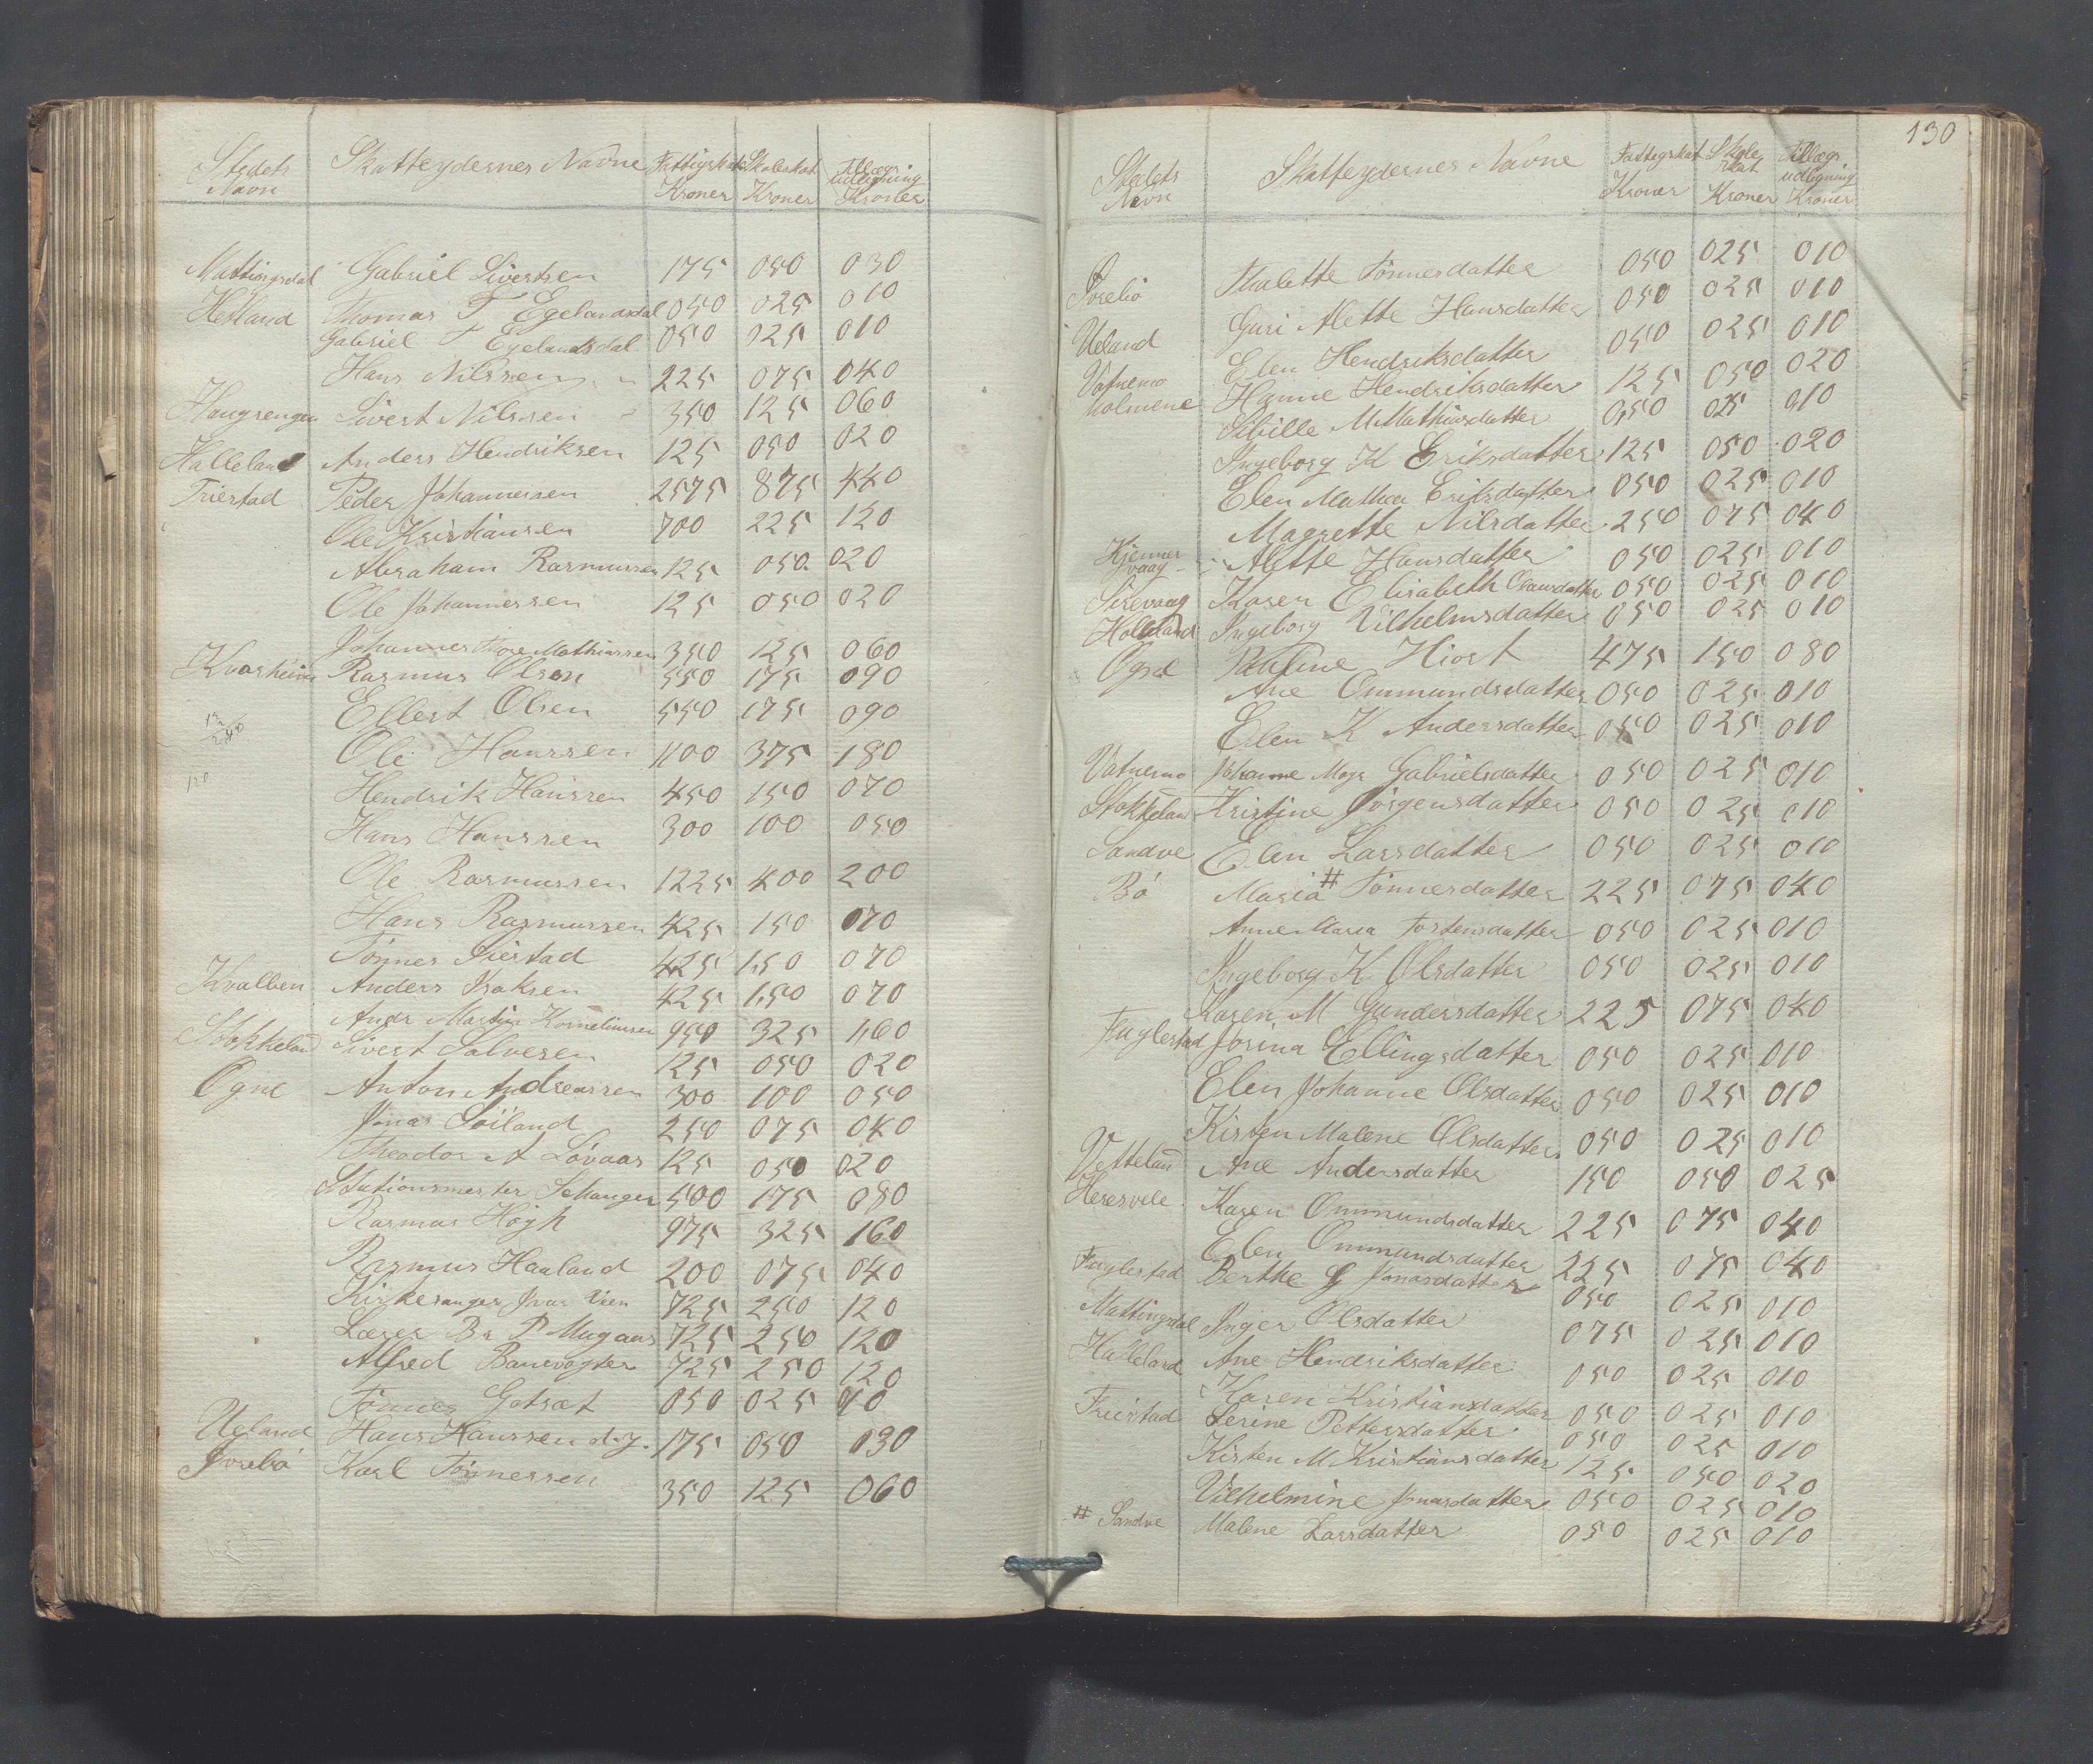 Stedets Navn | Skatteydernes Navne | Fattigskat Kroner | Skoleskat Kroner | Tillægs udligning Kroner
Mattingsdal Gabriel Sivertsen 175 050 030
Hetland Thomas T Egelandsdal 050 025 010
Gabriel T Egelandsdal 050 025 010
Hans Nilssen 225 075 040
Haugrengen Sivert Nilssen 350 125 060
Halleland Anders Hendriksen 125 050 020
Friestad Peder Johannessen 2575 875 440
Ole Kristiansen 700 225 120
Abraham Rasmussen 125 050 020
Ole Johannessen 125 050 020
Johannes Mathiassen 350 125 060
Kvasheim Rasmus Olsen 550 175 090
Ellert Olsen 550 175 090
Ole Hanssen 1100 375 180
Hendrik Hanssen 450 150 070
120
Hans Hanssen 300 100 050
Ole Rasmussen 1225 400 200
Hans Rasmussen 425 150 070
Tønnes Friestad 425 150 070
Kvalben Anders Isaksen 425 150 070
Andr Martin Korneliussen 950 325 160
Stokkeland Sivert Salvesen 125 050 020
Ogne Anton Andreassen 300 100 050
Jonas Søiland 250 075 040
Theodor A Løvaas 125 050 020
Stationsmester Schanger 500 175 080
Rasmus Høgh 975 325 160
Rasmus Haaland 200 075 040
Kirkesanger Ivar Lien 725 250 120
Lærer Br P Mugaas 725 250 120
Alfred Banevogter 725 250 120
Tønnes Gotsat 050 025 010
Ueland Hans Hanssen d.y. 175 050 030
Josebø Karl Tønnessen 350 125 060
130
Stedets Navn | Skatteydernes Navne | Fattigskat Kroner | Skoleskat Kroner | Tillægs udligning Kroner
Josebø Malette Tønnesdatter 050 025 010
Guri Alette Hansdatter 050 025 010
Ueland Elen Hendriksdatter 050 025 010
Vatnemo Hanne Hendriksdatter 125 050 020
Holmene Sibille M Mathiasdatter 050 025 010
Ingeborg K Eriksdatter 125 050 020
Elen Mathea Eriksdatter 050 025 010
Magrette Nilsdatter 250 075 040
Kjennervaag Alette Hansdatter 050 025 010
Sirevaag Karen Elisabeth Clausdatter 050 025 010
Holleland Ingeborg Vilhelmsdatter 050 025 010
Ogne Pauline Hiort 475 150 080
Ane Ommundsdatter 050 025 010
Elen K Andersdatter 050 025 010
Vatnemo Johanne Marg Gabrielsdatter 050 025 010
Stokkeland Kristine Jørgensdatter 050 025 010
Sandve Elen Larsdatter 050 025 010
Bø Maria # Tønnesdatter 225 075 040
Anne Maria Torstensdatter 050 025 010
Ingeborg K Olsdatter 050 025 010
Karen M Gundersdatter 225 075 040
Fuglestad Josina Ellingsdatter 050 025 010
Elen Johanne Olsdatter 050 025 010
Kirsten Malene Olsdatter 050 025 010
Vetteland Ane Andersdatter 150 050 025
Heresvele Karen Ommundsdatter 225 075 040
Elen Ommundsdatter 225 075 040
Fuglestad Berthe G Jonasdatter 050 025 010
Mattingsdal Inger Olsdatter 075 025 010
Halleland Ane Hendriksdatter 050 025 010
Karen Kristiansdatter 050 025 010
Friestad Serine Pettersdatter 050 025 010
Kirsten M Kristiansdatter 125 050 020
Vilhelmine Jonasdatter 050 025 010
# Sandve Malene Larsdatter 050 025 010